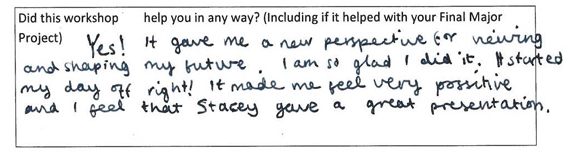 Did this workshop help you in any way? (Including if it helped with your Final Major
Project) Yes! It gave me a new perspective for viewing
and shaping my future. I am so glad I did it. It started
my day off right! It made me feel very possitive
and I feel that Stacey gave a great presentation.